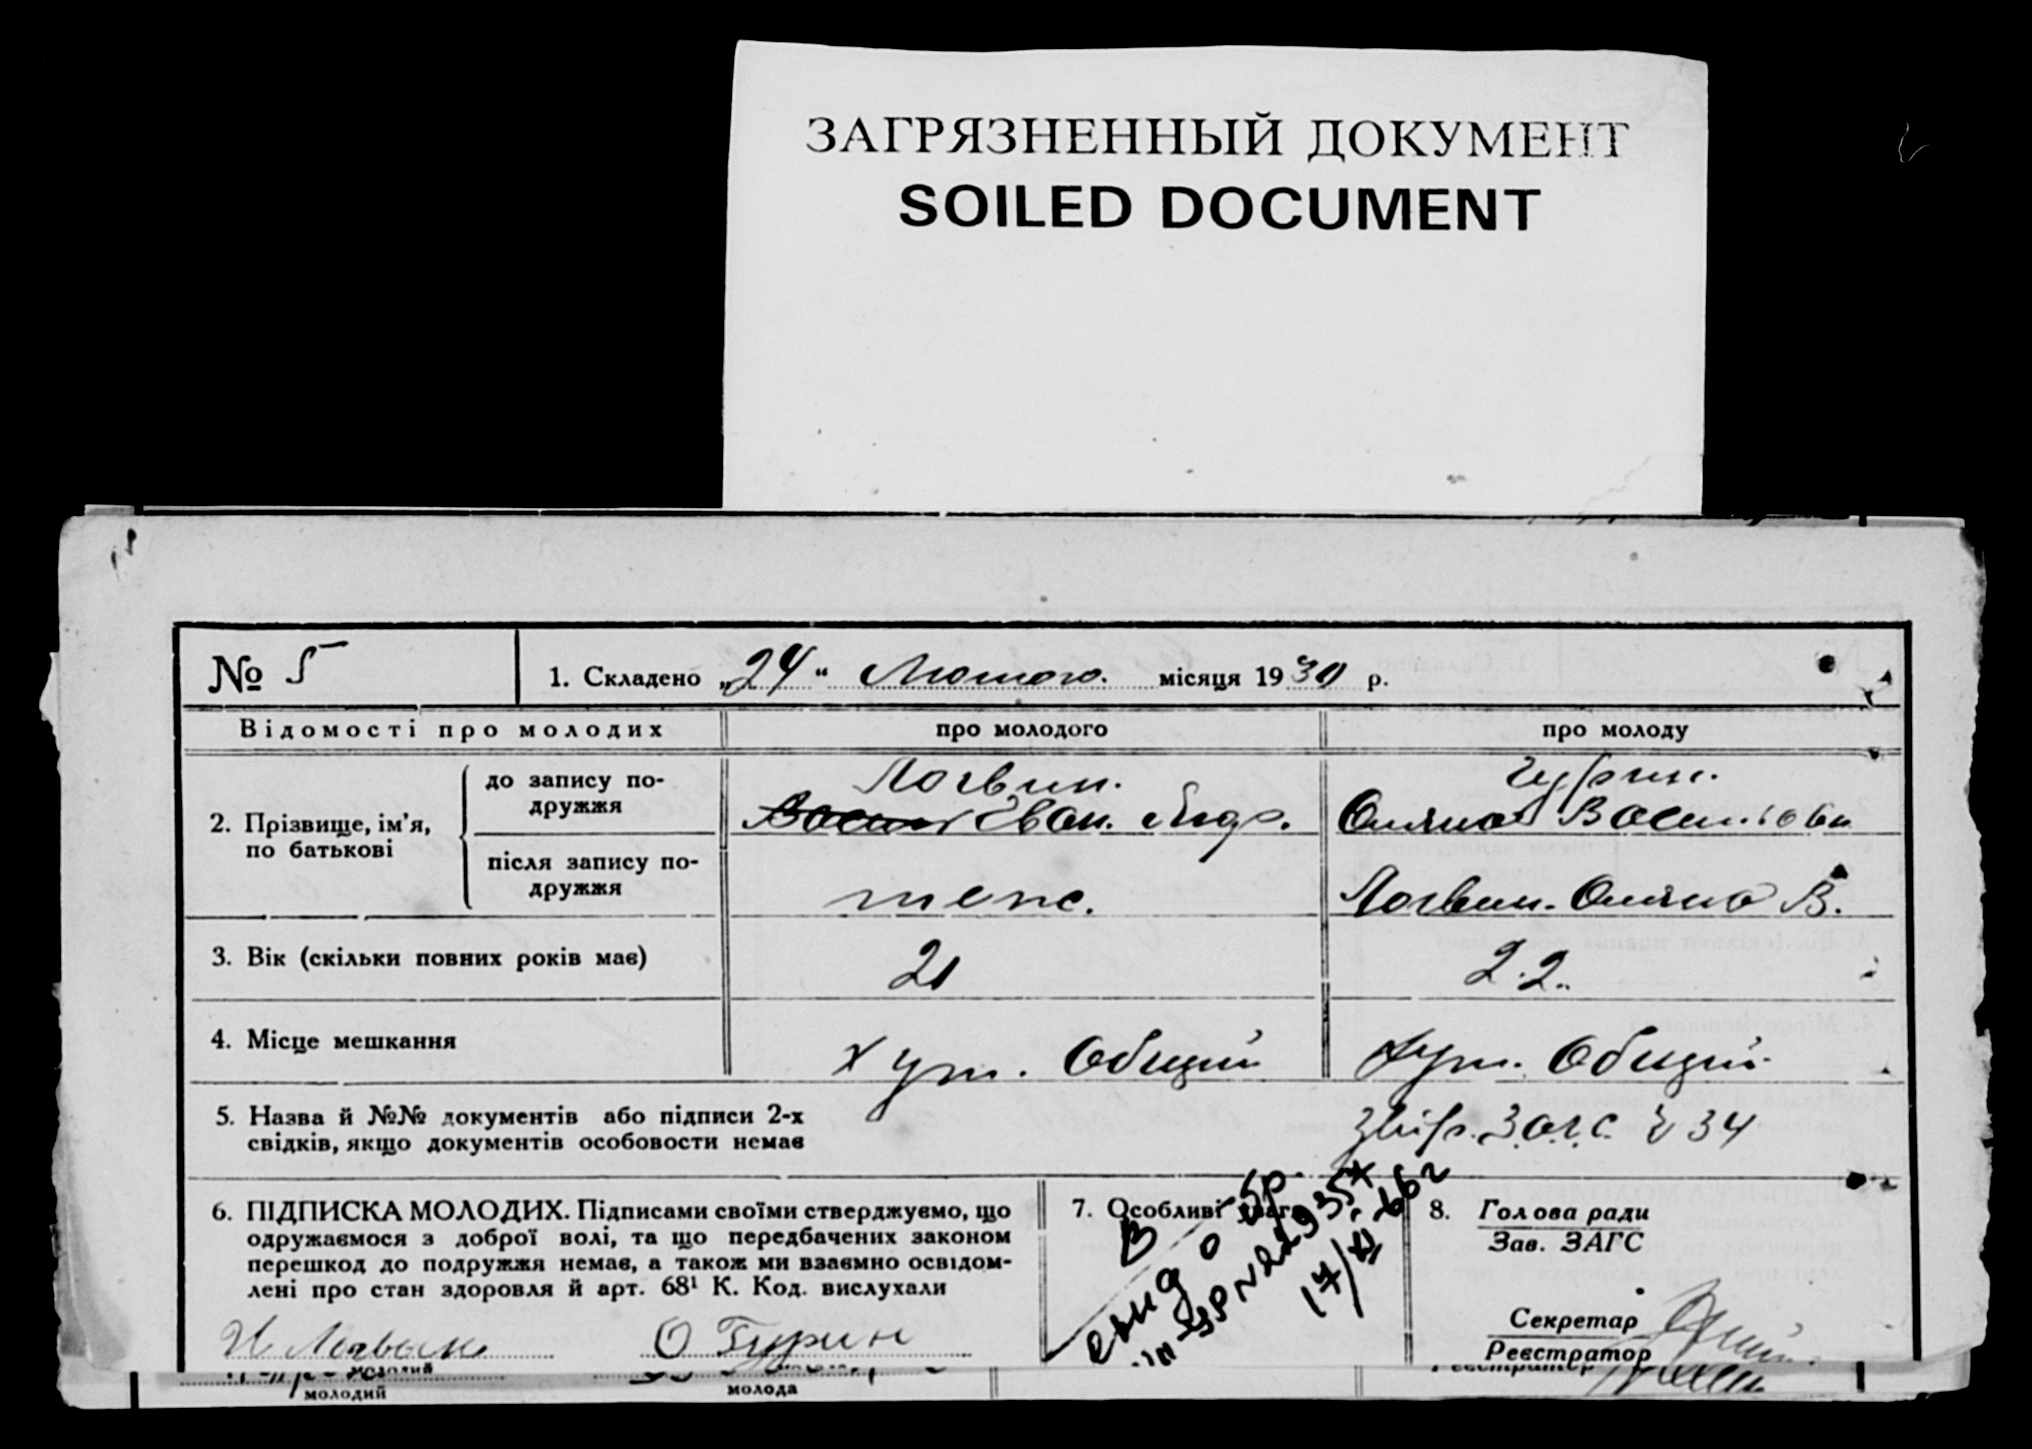 ЗАГРЯЗНЕННЫЙ ДОКУМЕНТ
SOILED DOCUMENT
№ 5
1. Складено „24“ Лютого. місяця 1930 р.
Відомості про молодих
про молодого
про молоду
2. Прізвище, ім'я, по батькові
до запису подружжя
Логвин.
Іван. Андр.
Гурин.
Оляна
після запису подружжя
теж.
Логвин. Оляна В.
3. Вік (скільки повних років має)
21
22.
4. Місце мешкання
хут. Общий
Хут. Общий.
5. Назва й №№ документів або підписи 2-х
свідків, якщо документів особовости немає
З.А.Г.С. 34
6. ПІДПИСКА МОЛОДИХ. Підписами своїми стверджуємо, що
одружаємося з доброї волі, та що передбачених законом
перешкод до подружжя немає, а також ми взаємно освідом-
лені про стан здоровля й арт. 68¹ К. Код. вислухали
И Логвын
О Гурин
7. Особливі уваги
В
свид о бр.
17/XI-662
8. Голова ради
Зав. ЗАГС
Секретар
Реєстратор
молодий
молода